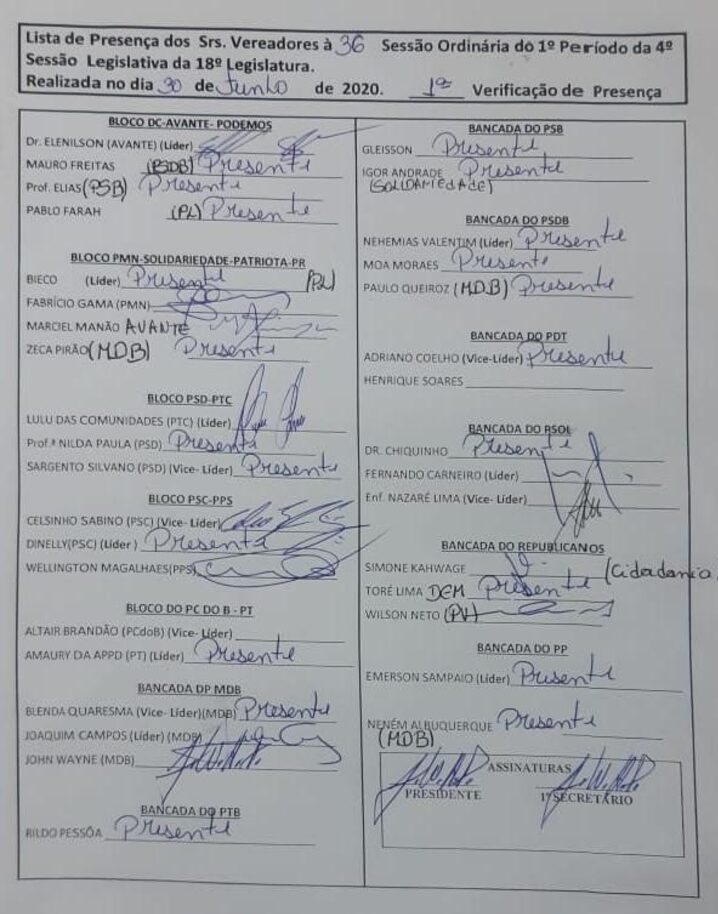 Lista de Presença dos Srs. Vereadores à 36 Sessão Ordinária do 1º Período da 4º
Sessão Legislativa da 18º Legislatura.
Realizada no dia 30 de Junho de 2020. 1ª Verificação de Presença
BLOCO DC-AVANTE- PODEMOS
Dr. ELENILSON (AVANTE) (Líder)
MAURO FREITAS (PSDB) Presente
Prof. ELIAS (PSB) Presente
PABLO FARAH (PL) Presente
BLOCO PMN-SOLIDARIEDADE-PATRIOTA-PR
BIECO (Líder) Presente (PL)
FABRÍCIO GAMA (PMN)
MARCIEL MANÃO AVANTE
ZECA PIRÃO (MDB) Presente
BLOCO PSD-PTC
LULU DAS COMUNIDADES (PTC) (Líder)
Prof.ª NILDA PAULA (PSD) Presente
SARGENTO SILVANO (PSD) (Vice- Líder) Presente
BLOCO PSC-PPS
CELSINHO SABINO (PSC) (Vice- Líder)
DINELLY(PSC) (Líder ) Presente
WELLINGTON MAGALHAES(PPS)
BLOCO DO PC DO B - PT
ALTAIR BRANDÃO (PCdoB) (Vice- Líder)
AMAURY DA APPD (PT) (Líder) Presente
BANCADA DP MDB
BLENDA QUARESMA (Vice- Líder)(MDB) Presente
JOAQUIM CAMPOS (Líder) (MDB)
JOHN WAYNE (MDB)
BANCADA DO PTB
RILDO PESSÔA Presente
BANCADA DO PSB
GLEISSON Presente
IGOR ANDRADE Presente
(SOLIDARIEDADE)
BANCADA DO PSDB
NEHEMIAS VALENTIM (Líder) Presente
MOA MORAES Presente
PAULO QUEIROZ (MDB) Presente
BANCADA DO PDT
ADRIANO COELHO (Vice-Líder) Presente
HENRIQUE SOARES
BANCADA DO PSOL
DR. CHIQUINHO Presente
FERNANDO CARNEIRO (Líder)
Enf. NAZARÉ LIMA (Vice- Líder)
BANCADA DO REPUBLICANOS
SIMONE KAHWAGE (Cidadania
TORÉ LIMA DEM Presente
WILSON NETO (PV)
BANCADA DO PP
EMERSON SAMPAIO (Líder) Presente
NENÉM ALBUQUERQUE Presente
(MDB)
ASSINATURAS
PRESIDENTE 1º SECRETÁRIO